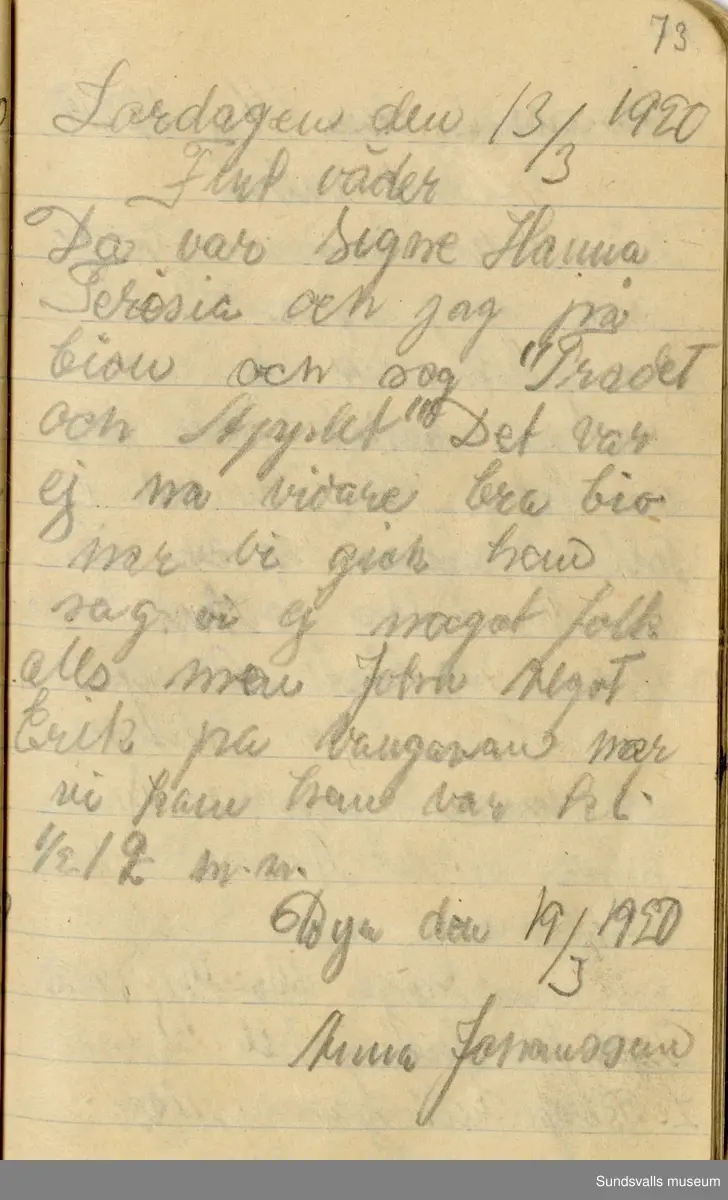 73
Lördagen den 13/3 1920
Fint väder
Da var Signe Hanna
Terésia och jag på
bion och sag "Tradet
och Applet" Det var
ej na vidare bra bio
nær vi gick hem
sag vi ej nægot folk
alls men John Algot
Erik pa vangavan nær
vi kom hem var kl.
1/2 12 m.n.
Byn den 19/3 1920
Anna Johansson
Sundsvalls museum